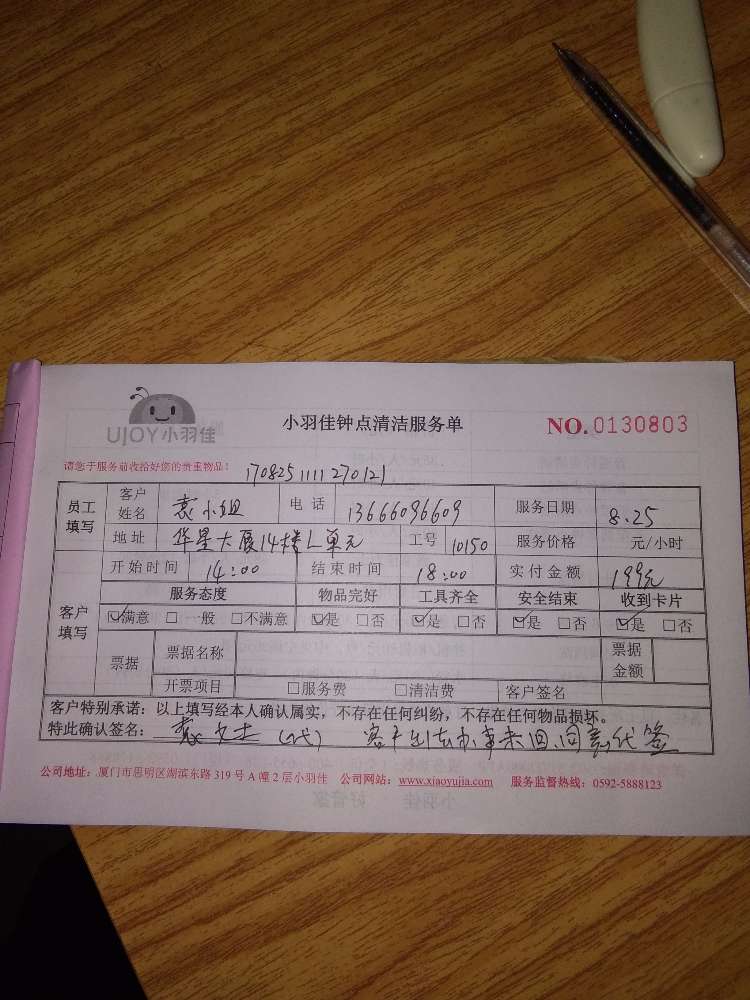 UJOY小羽佳 小羽佳钟点清洁服务单 NO.0130803
请您于服务前收拾好您的贵重物品! 1708251111270121
员工填写 客户姓名 袁小姐 电话 13666096609 服务日期 8.25
地址 华星大厦14楼L单元 工号 10150 服务价格 元/小时
客户填写 开始时间 14:00 结束时间 18:00 实付金额 199元
服务态度 物品完好 工具齐全 安全结束 收到卡片
☑满意 □一般 □不满意 ☑是 □否 ☑是 □否 ☑是 □否 ☑是 □否
票据 票据名称 票据金额
开票项目 □服务费 □清洁费 客户签名
客户特别承诺:以上填写经本人确认属实,不存在任何纠纷,不存在任何物品损坏。
特此确认签名: 袁女士 (代) 客户出去办事未回,同意代签
公司地址:厦门市思明区湖滨东路319号A幢2层小羽佳 公司网站:www.xiaoyujia.com 服务监督热线:0592-5888123